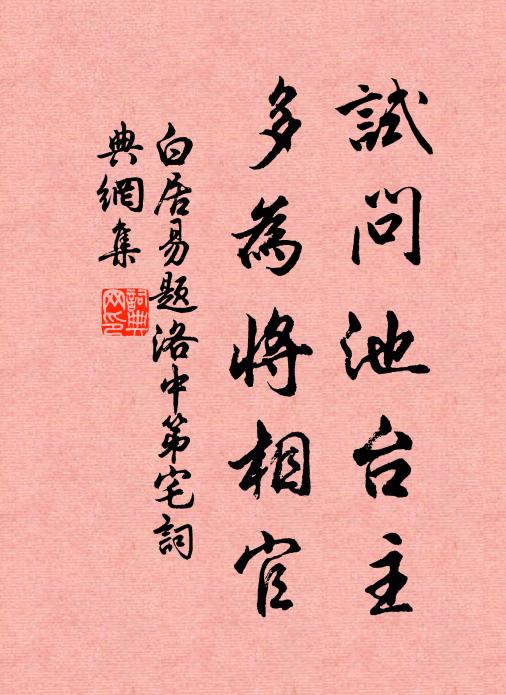 試問池台主
多為將相官
白居易題洛中第宅詞
典網集
詞典
网印